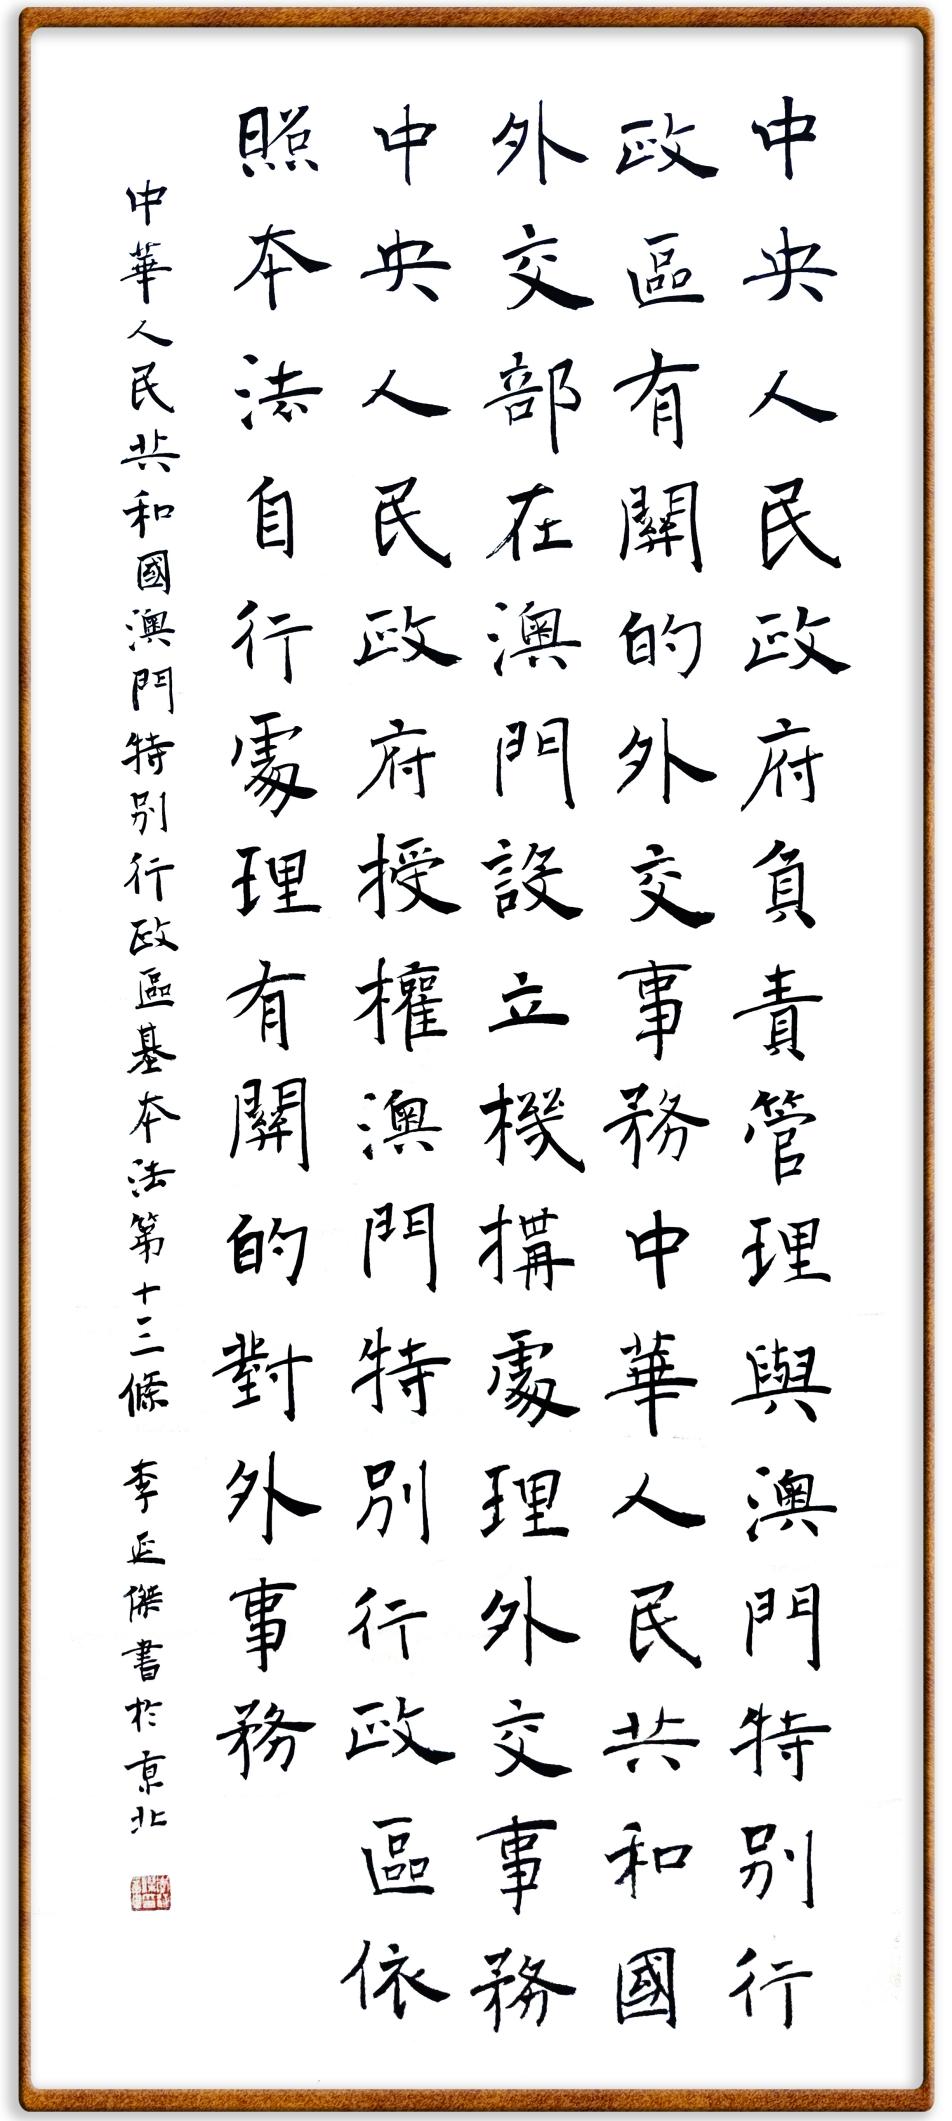 中央人民政府負責管理與澳門特別行
政區有關的外交事務中華人民共和國
外交部在澳門設立機搆處理外交事務
中央人民政府授權澳門特別行政區依
照本法自行處理有關的對外事務
中華人民共和國澳門特別行政區基本法第十三條 李延傑書於京北